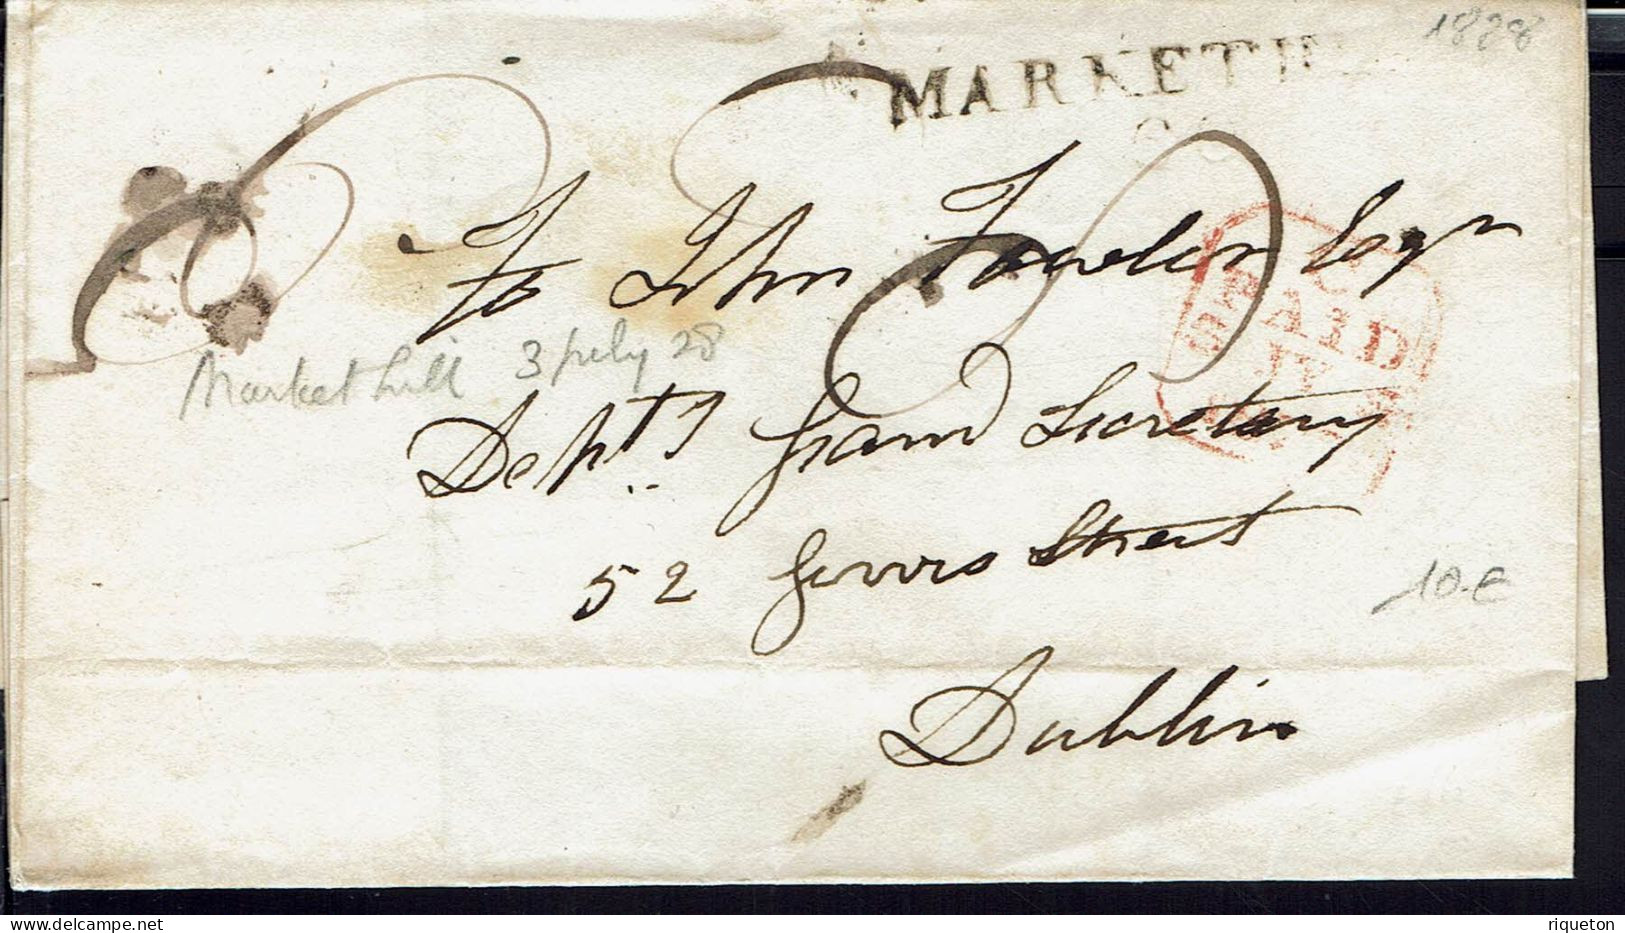 1828
MARKETH
To John Fowler Esqr
PAID
Market hill 3 July 28
Depty Grand Secretary
52 Street
Dublin
10.€
delcampe.net
riqueton